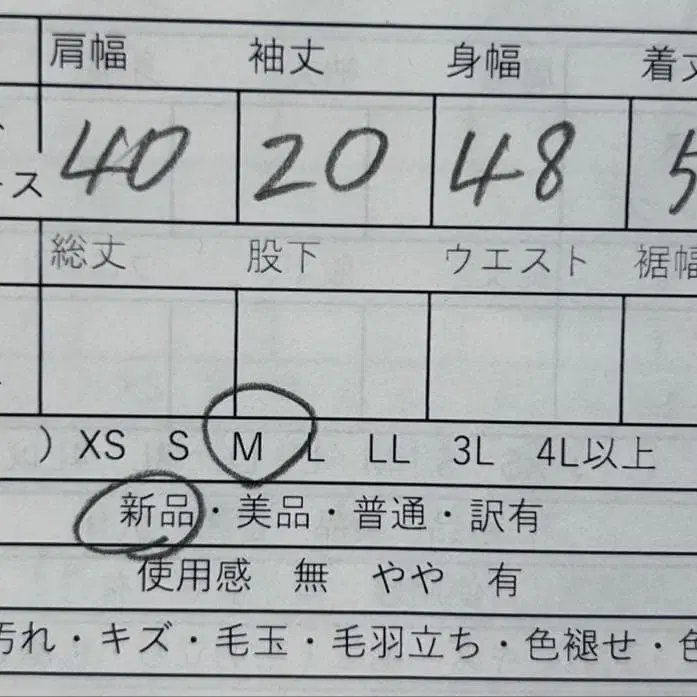 肩幅 袖丈 身幅 着丈
ース 40 20 48 5
総丈 股下 ウエスト 裾幅
) XS S M L LL 3L 4L以上
新品・美品・普通・訳有
使用感 無 やや 有
汚れ・キズ・毛玉・毛羽立ち・色褪せ・色